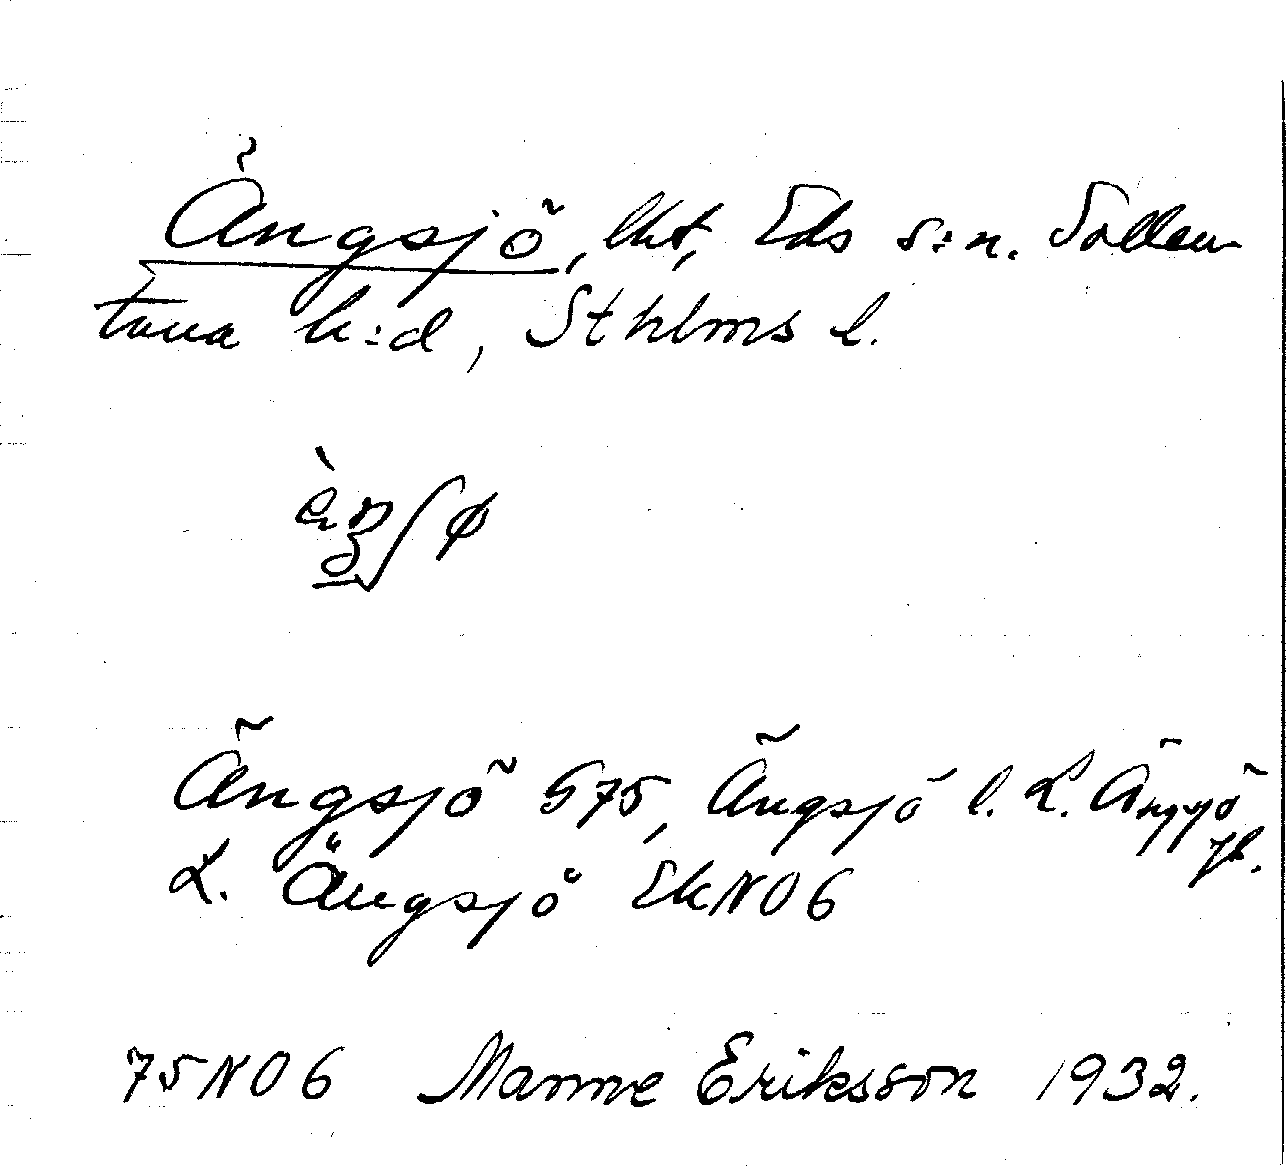 Ängsjö, lht, Eds s:n. Sollen-
tuna h:d, Sthlms l.
Ängsjö G75, Ängsjö l. L. Ängsjö
jb.
L. Ängsjö EkNO6
75NO6 Manne Eriksson 1932.